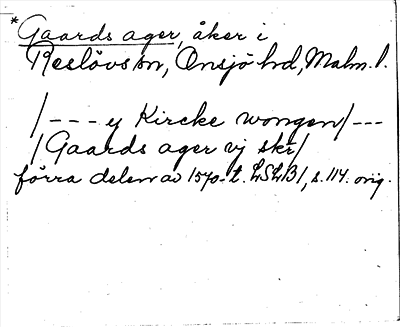 *Gaards ager, åker i
Reslövs sn, Onsjö hd, Malm. l.
/--- y Kircke wongen/---
/Gaards ager vj skr/
förra delen av 1570-t. LSLB1, s. 114. orig.